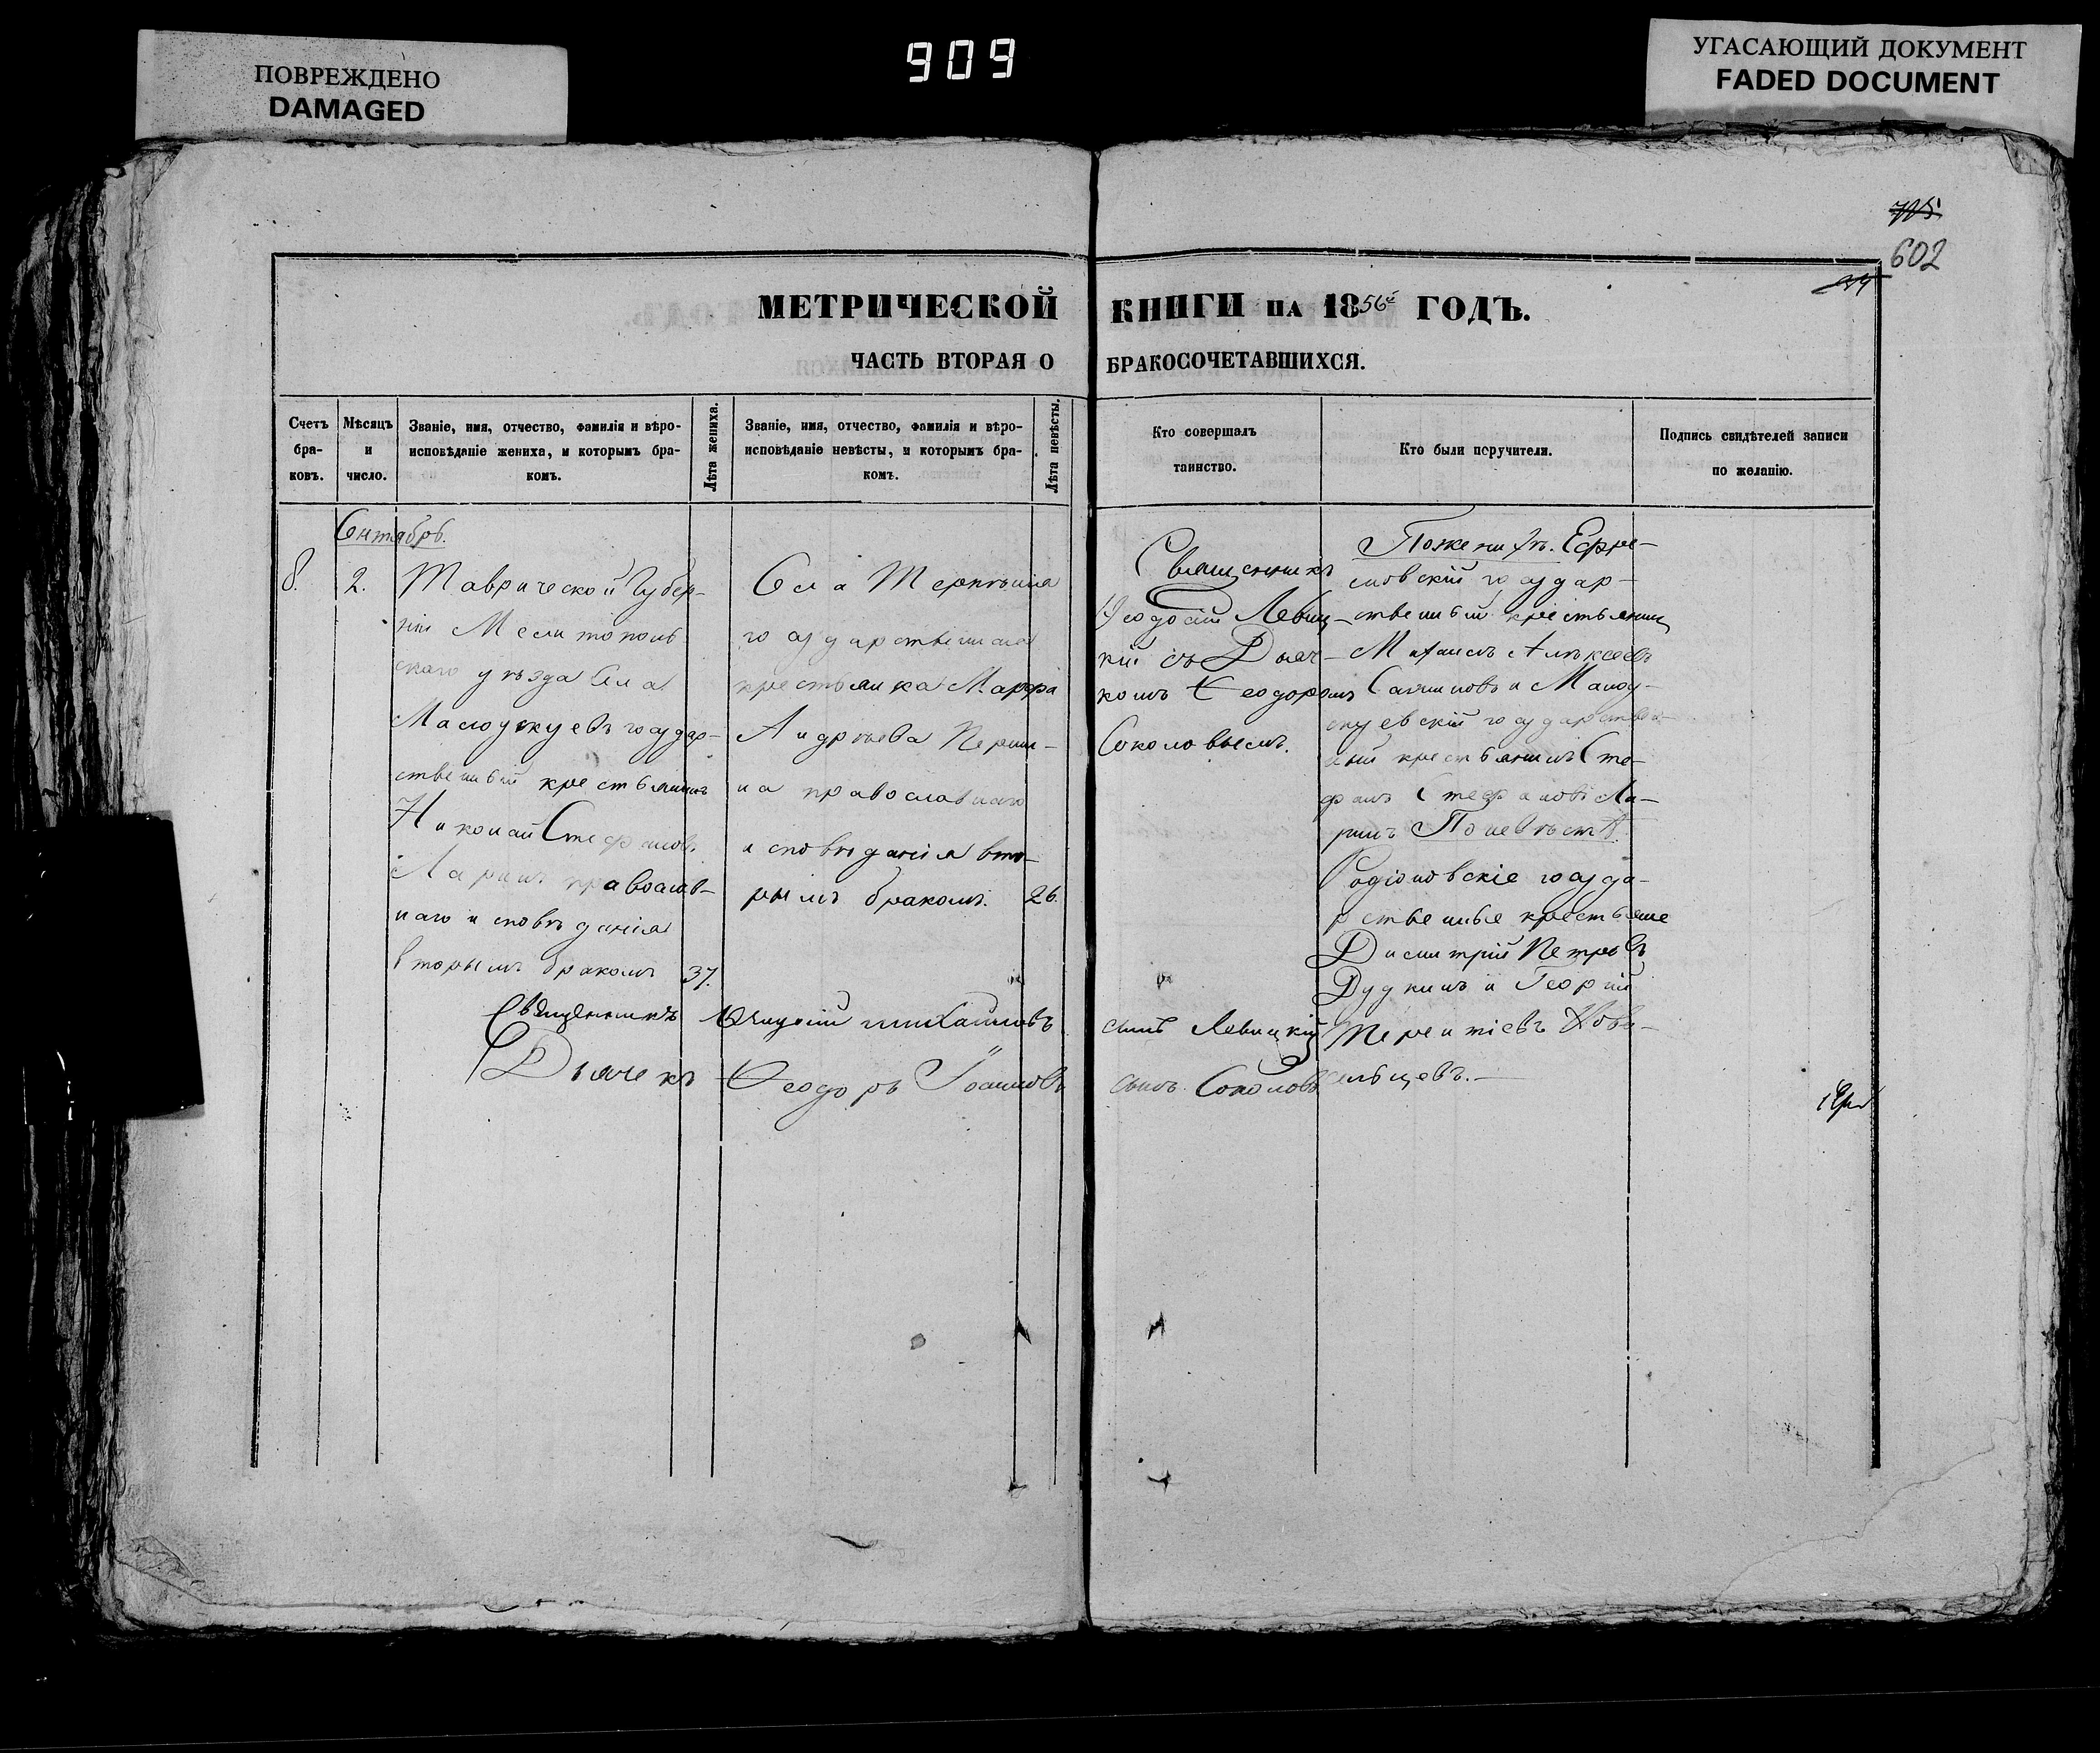 ПОВРЕЖДЕНО
DAMAGED
909
УГАСАЮЩИЙ ДОКУМЕНТ
FADED DOCUMENT
602
МЕТРИЧЕСКОЙ КНИГИ на 1856й ГОДЪ.
ЧАСТЬ ВТОРАЯ О БРАКОСОЧЕТАВШИХСЯ.
Счетъ
бра-
ковъ.
Мѣсяцъ
и
число.
Званіе, имя, отчество, фамилія и вѣро-
исповѣданіе жениха, и которымъ бра-
комъ.
Лѣта жениха.
Званіе, имя, отчество, фамилія и вѣро-
исповѣданіе невѣсты, и которымъ бра-
комъ.
Лѣта невѣсты.
Кто совершалъ
таинство.
Кто были поручители.
Подпись свидѣтелей записи
по желанію.
Сентябрь.
8.
2.
Таврической Губер-
ніи Мелитополь
скаго уѣзда Села
государ-
ственный крестьянинъ
Николай Стефановъ
Ларинъ православ-
наго исповѣданія
вторымъ бракомъ
37.
Села Терпѣнія
государственная
крестьянка Марфа
Андрѣева
православнаго
исповѣданія вто-
рымъ бракомъ.
26.
Священникъ
Феодосій Левиц-
кій съ Дьяч-
комъ Феодоромъ
Соколовымъ.
По женихѣ. Ефре-
мовскій государ-
ственный крестьянинъ
Михаилъ Алексѣевъ
и Маноу-
скуевскій государствен-
ный крестьянинъ Сте-
фанъ Стефановъ Ла-
ринъ По невѣстѣ.
Родіоновскіе госуда-
рственные крестьяне
Димитрій Петровъ
Дудкинъ и Георгій
Терентіевъ Ново-
сельцевъ.
Священникъ Феодосій Михайловъ сынъ Левицкій
Дьячекъ Феодоръ Іоанновъ сынъ Соколовъ